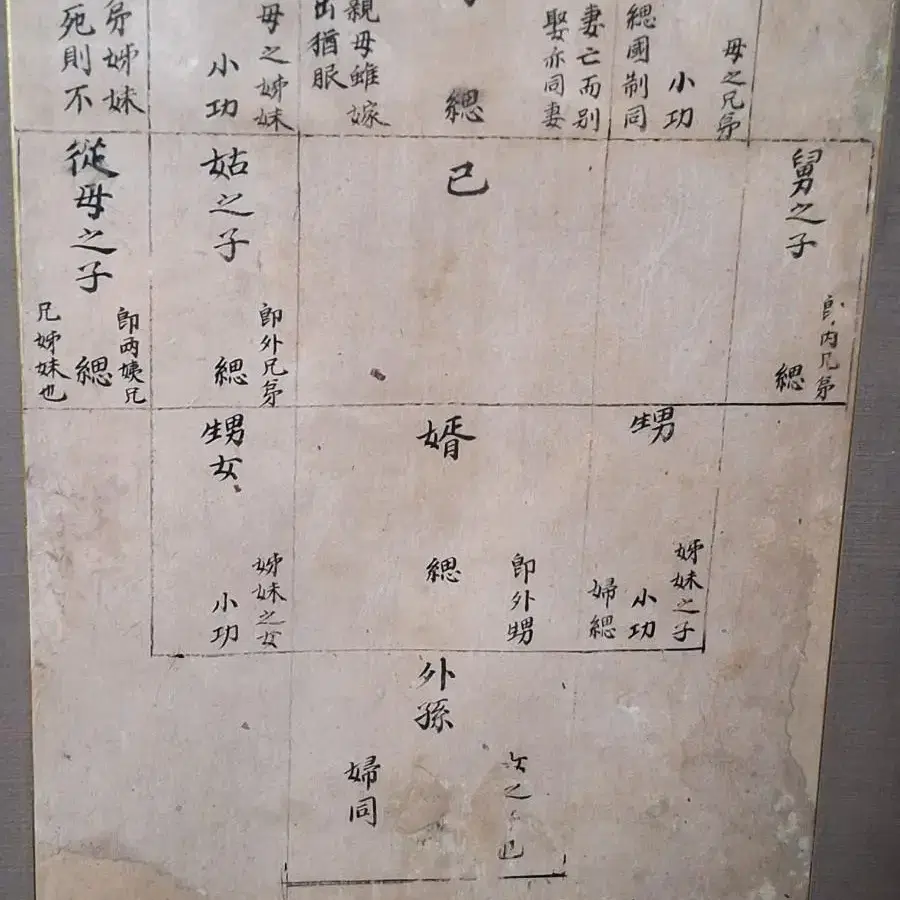 母之兄弟
小功
緦國制同
妻亡而別
娶亦同妻
緦
親母雖嫁
出猶服
母之姊妹
小功
弟姊妹
死則不
舅之子
卽內兄弟
緦
己
姑之子
卽外兄弟
緦
從母之子
卽兩姨兄
緦
兄姊妹也
甥
姊妹之子
小功
婦緦
婿
卽外甥
緦
甥女
姊妹之女
小功
外孫
女之
也
婦同